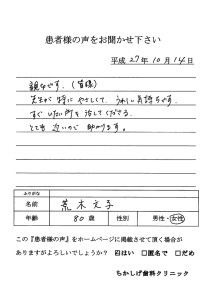 患者様の声をお聞かせ下さい
平成 27年 10月 14日
親切です。(皆様)
先生が特にやさしくて、うれしい気持ちです。
すぐいたい所を治してくださる。
とても近いので助かります。
ふりがな
名前 荒木文子
年齢 80歳 性別 男性・女性
この『患者様の声』をホームページに掲載させて頂く場合が
ありますがよろしいでしょうか? ☑はい □匿名で □だめ
ちかしげ歯科クリニック